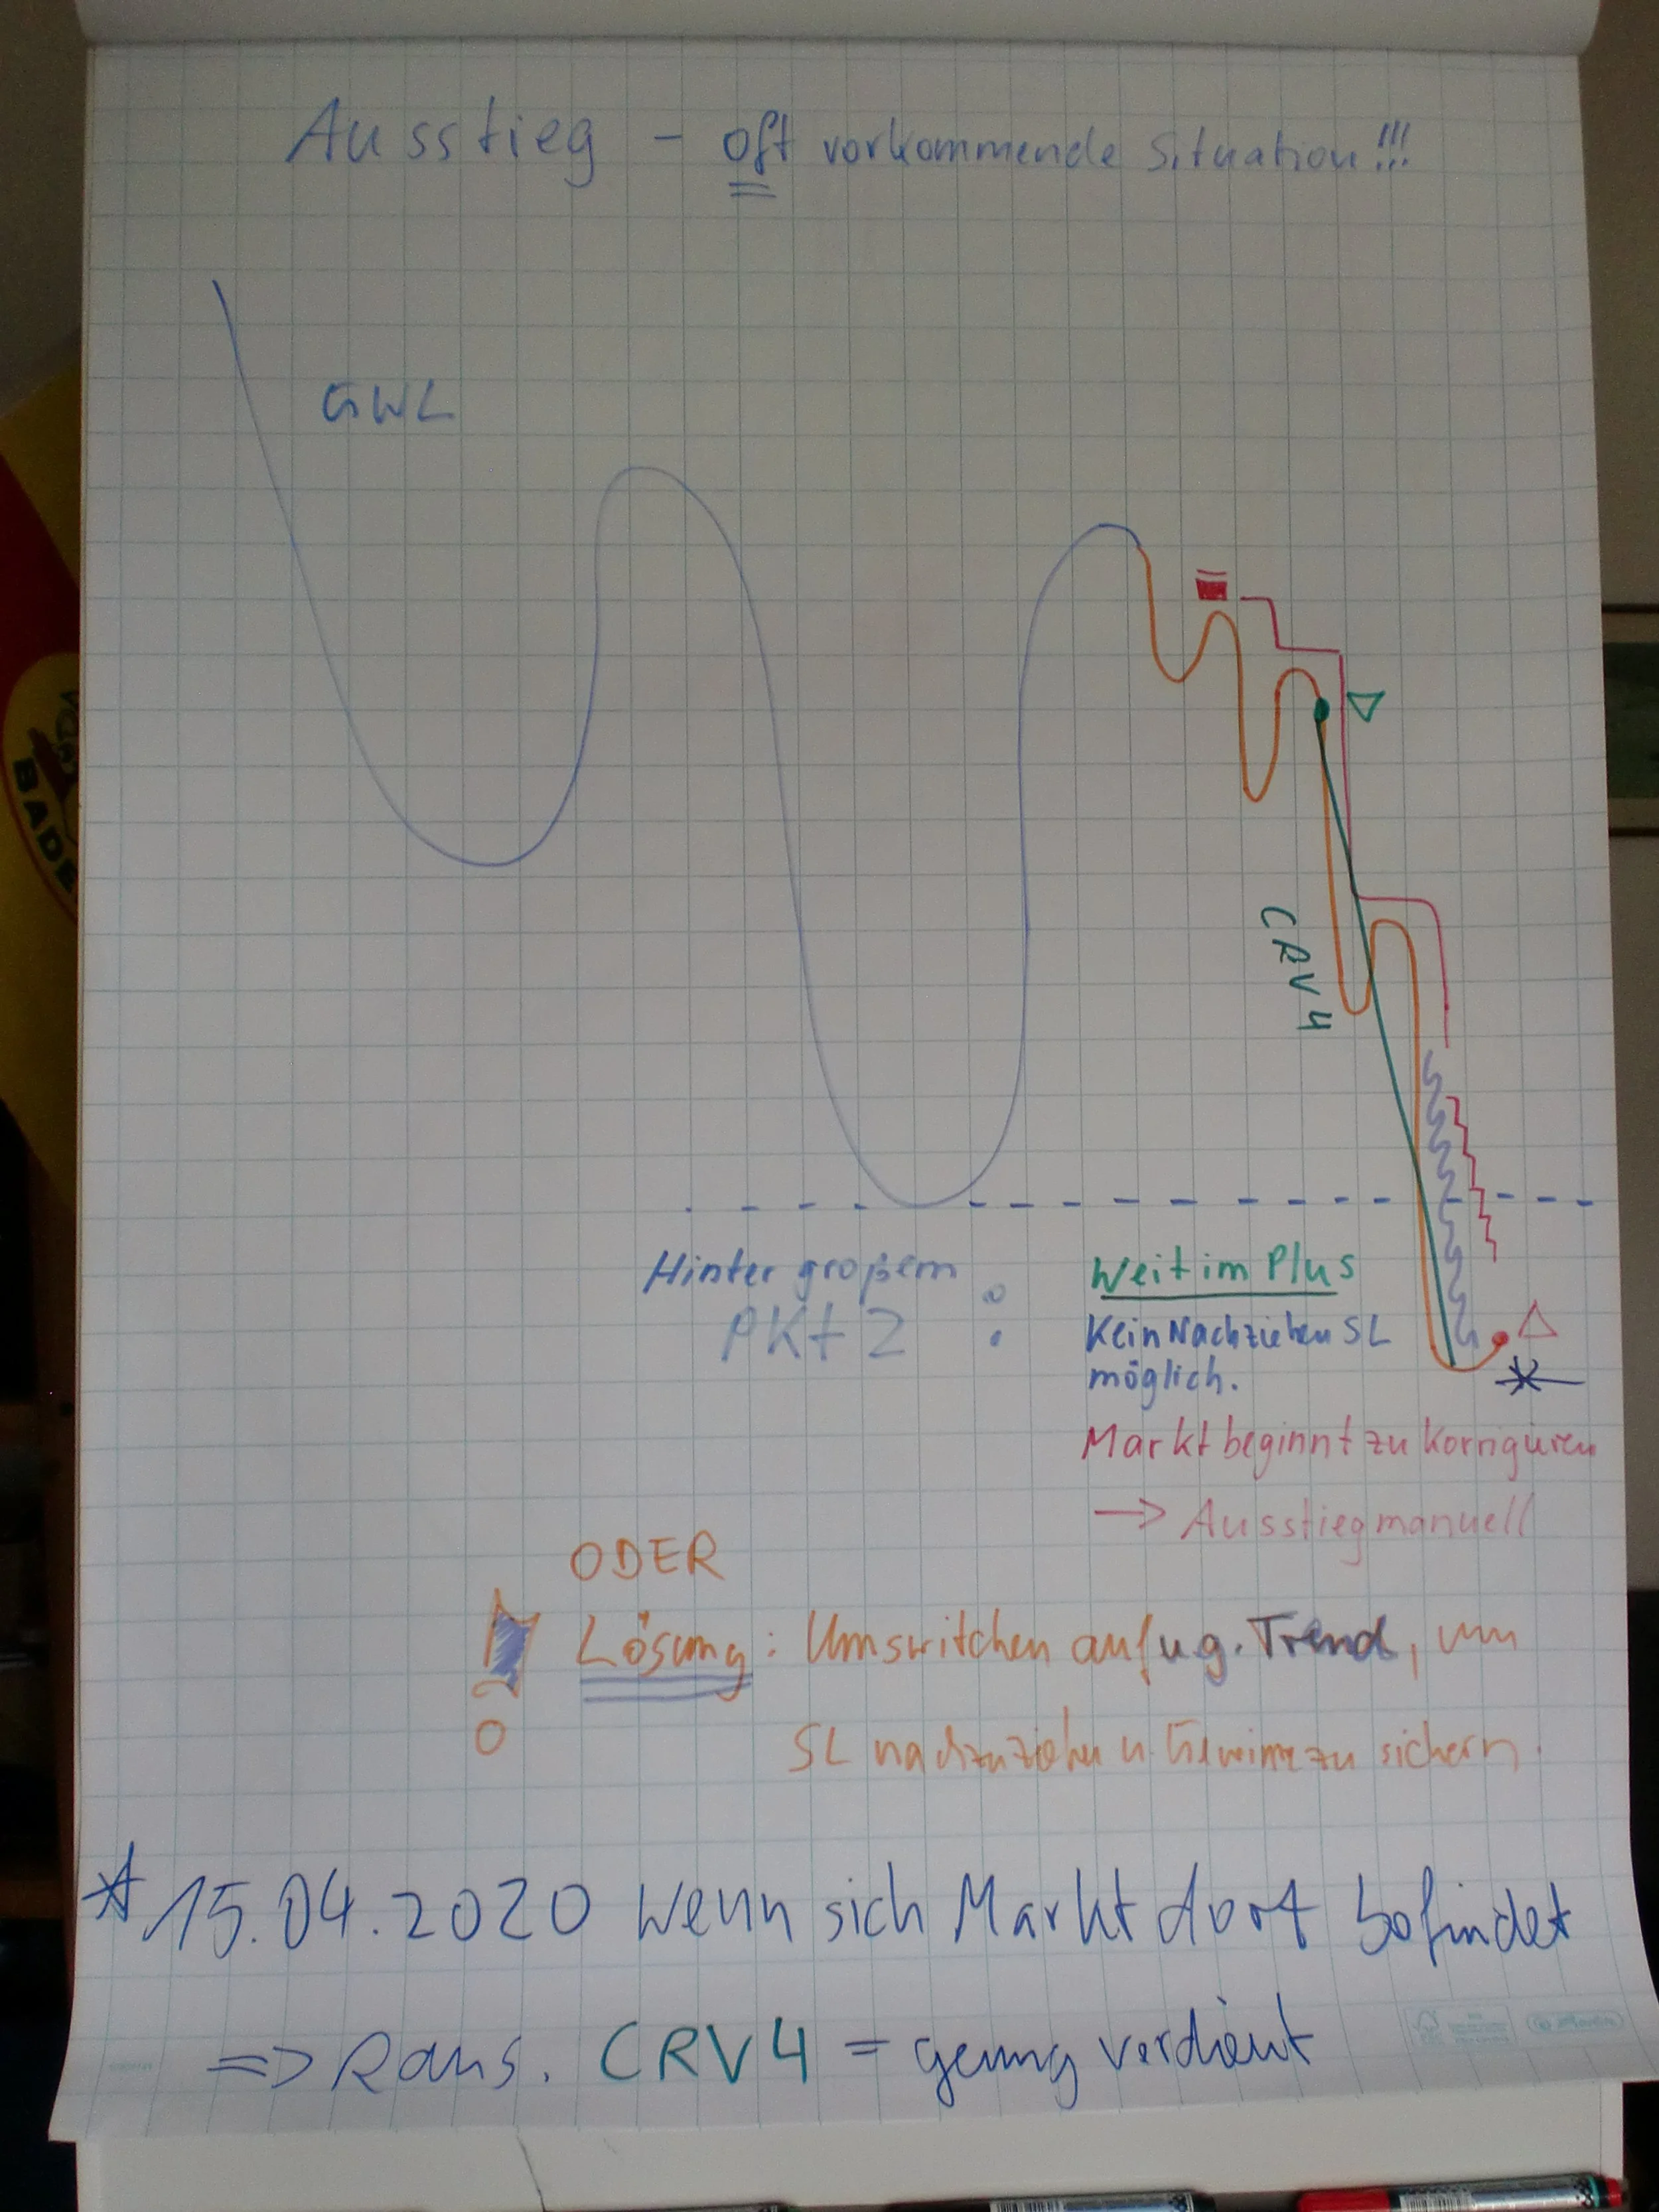 Ausstieg - oft vorkommende Situation!!!
GWL
CRV 4
BADE
Hinter großem
PKt 2 :
Weit im Plus
Kein Nachziehen SL
möglich.
Markt beginnt zu Korrigieren
→ Ausstieg manuell
ODER
Lösung: Umswitchen auf ug. Trend, um
SL nachzuziehen u. Gewinne zu sichern.
* 15.04.2020 Wenn sich Markt dort befindet
=> Raus. CRV 4 = genug verdient